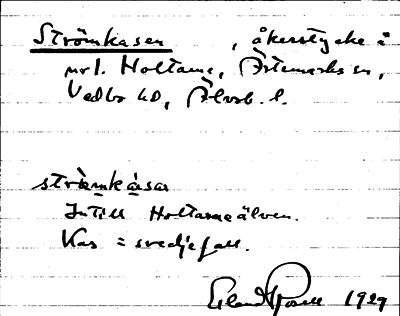 Strömkasen, åkerstycke i
nr 1. Holtane, Ärtemarks sn,
Vedbo hd, Älvsb. l.
strömkàsar
Intill Holtaneälven.
Kas = svedjefall.
1929